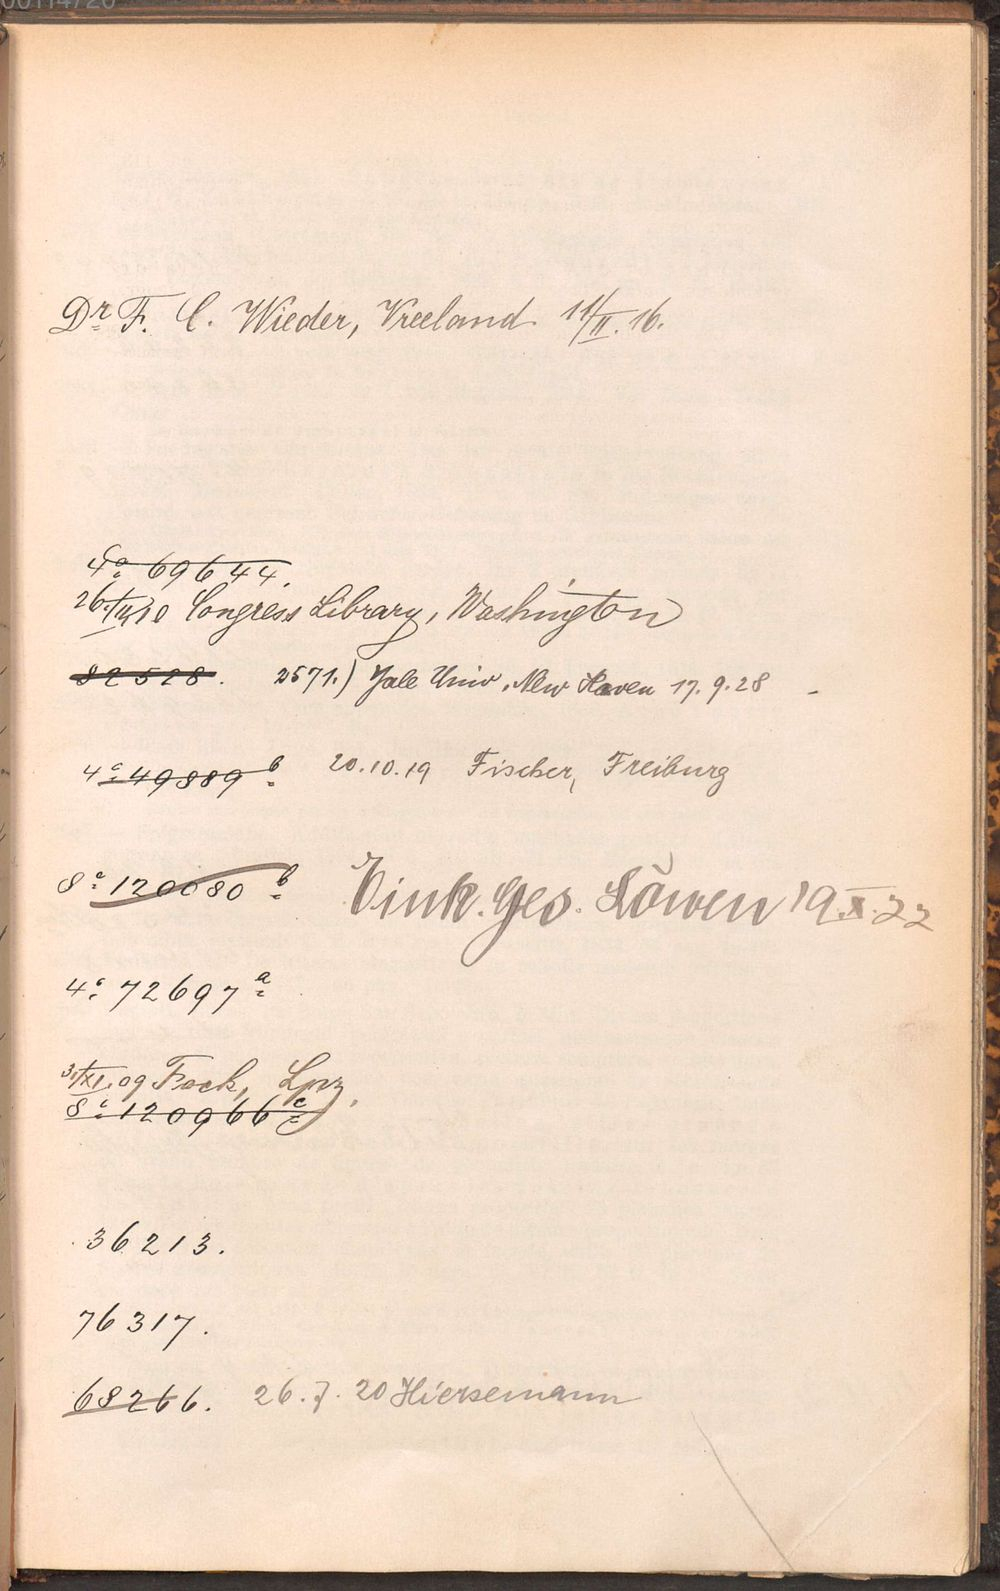 00114720
Dr. F. C. Wieder, Vreeland 11/II. 16.
4o 69644.
26./III 10 Congress Library, Washington
82528. 2571.) Yale Univ. New Haven 17.9.28 -
4o 49889 b 20.10.19 Fischer, Freiburg
8o 120080 b Eink. Ges. Löwen 19.X.22
4o 72697 a
3./XI. 09 Fock, Lpz.
8o 120966 c
36213.
76317.
68266. 26.7.20 Hiersemann